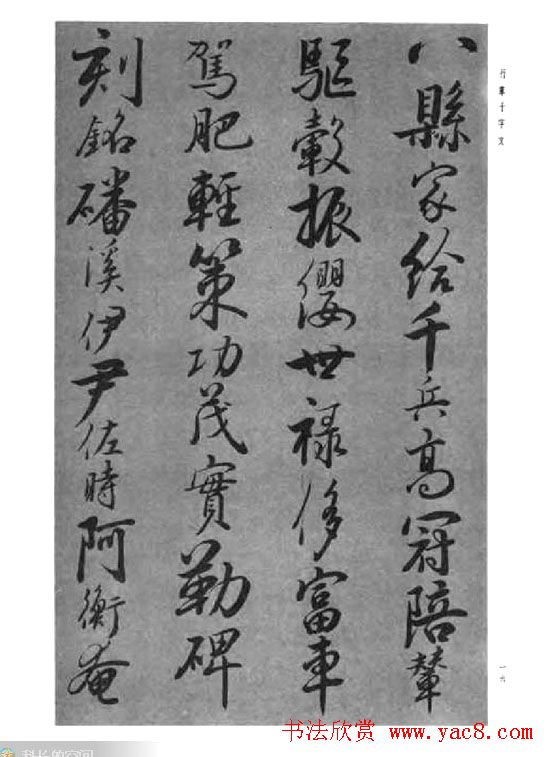 行書千字文
八縣家給千兵高冠陪輦
驅轂振纓世祿侈富車
駕肥輕策功茂實勒碑
刻銘磻溪伊尹佐時阿衡奄
一六
书法欣赏
www.yac8.com
科长的空间